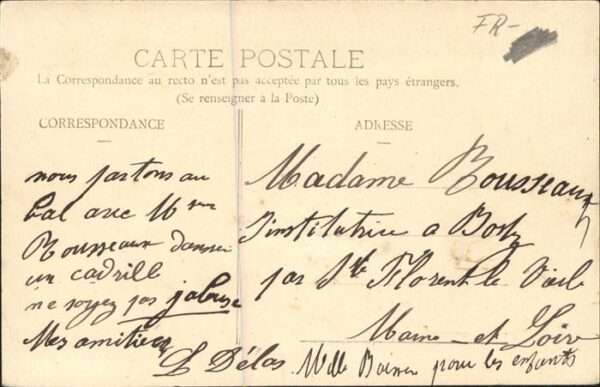 FR-
CARTE POSTALE
La Correspondance au recto n'est pas acceptée par tous les pays étrangers.
(Se renseigner à la Poste)
CORRESPONDANCE
nous partons au
bal avec Mr
Rousseaux danser
un cadrille
ne soyez pas jalouse
Mes amitiées
L Délas
ADRESSE
Madame Rousseaux
Institutrice a
par Ste Florent le Viel
Maine-et-Loire
Mlle pour les enfants